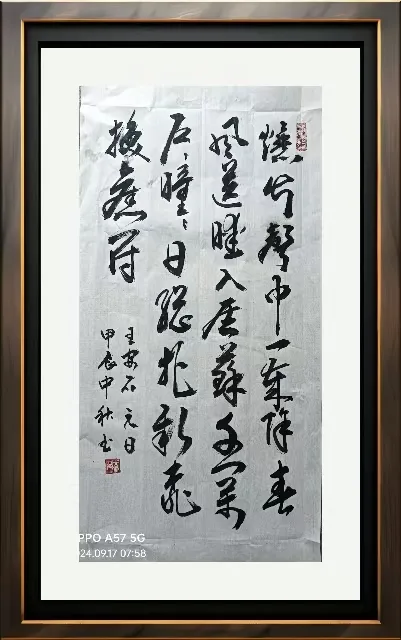 爆竹聲中一歲除春
風送暖入屠蘇千門萬
戶曈々日總把新桃
換舊符
王安石元日
甲辰中秋书
PPO A57 5G
24.09.17 07:58